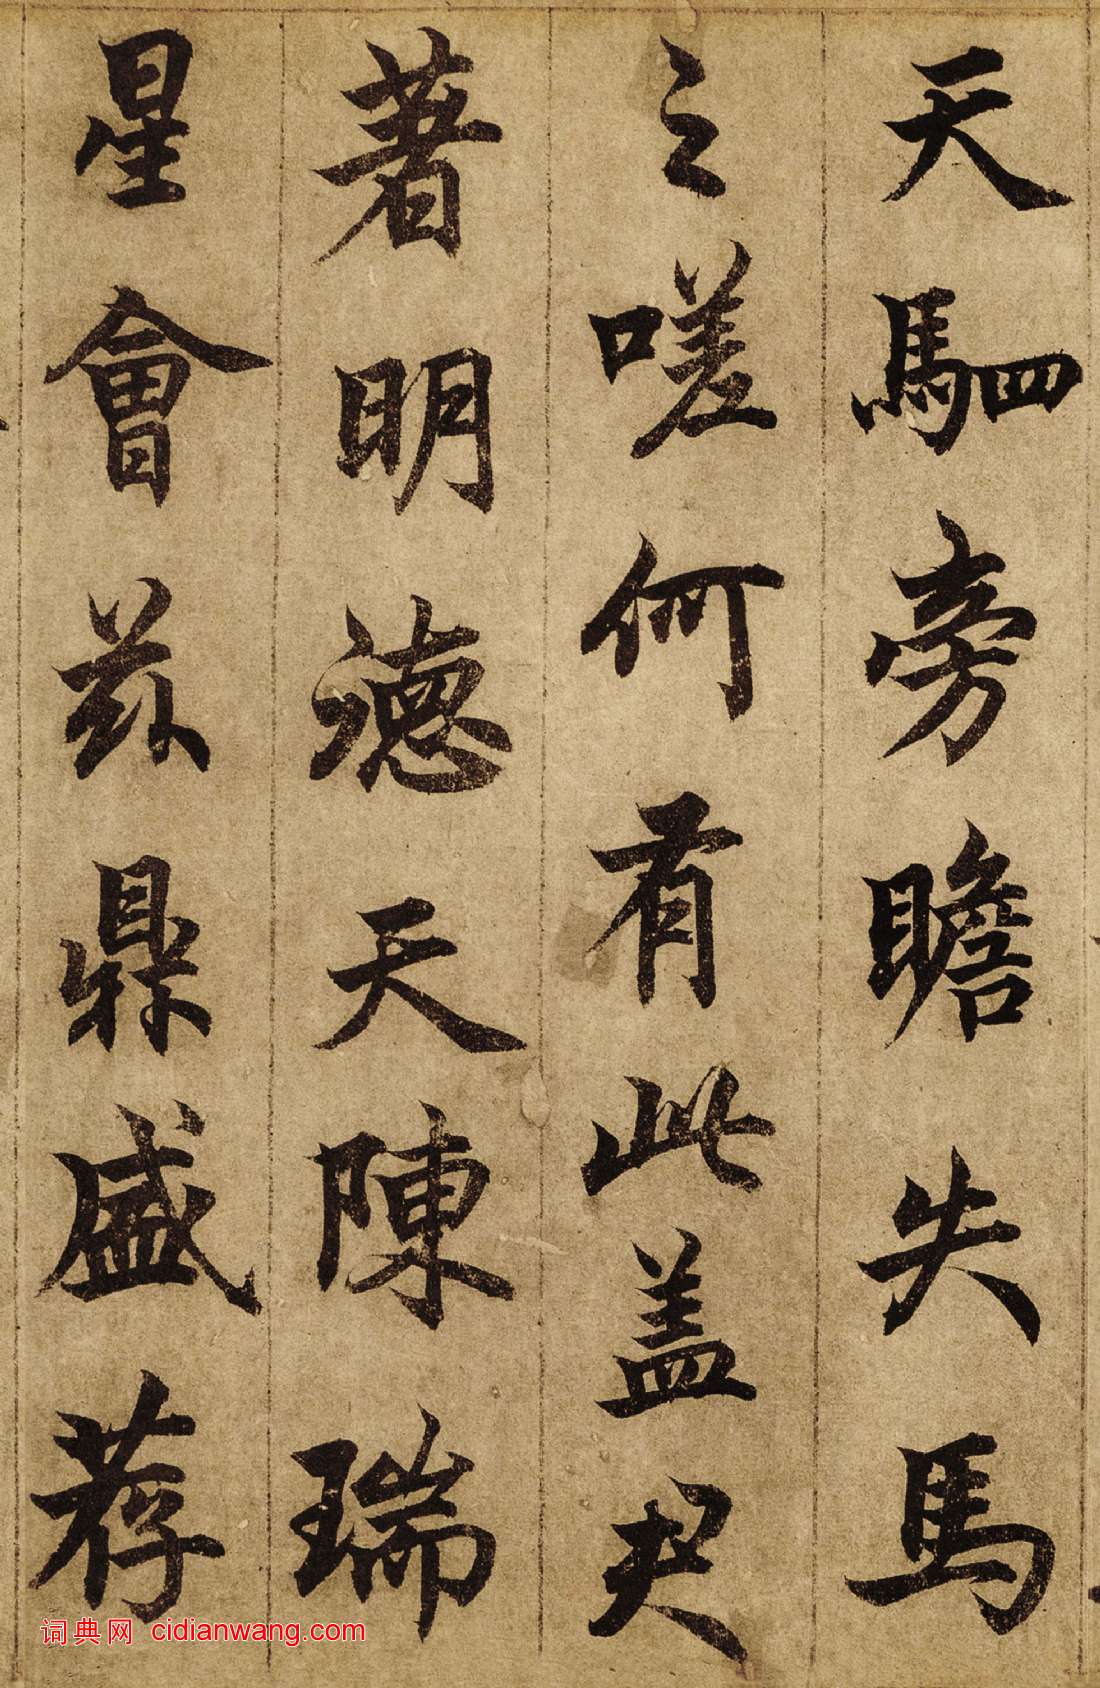 天駟旁瞻失馬
之嗟何有此盖君
著明德天陳瑞
星會兹鼎盛荐
词典网 cidianwang.com